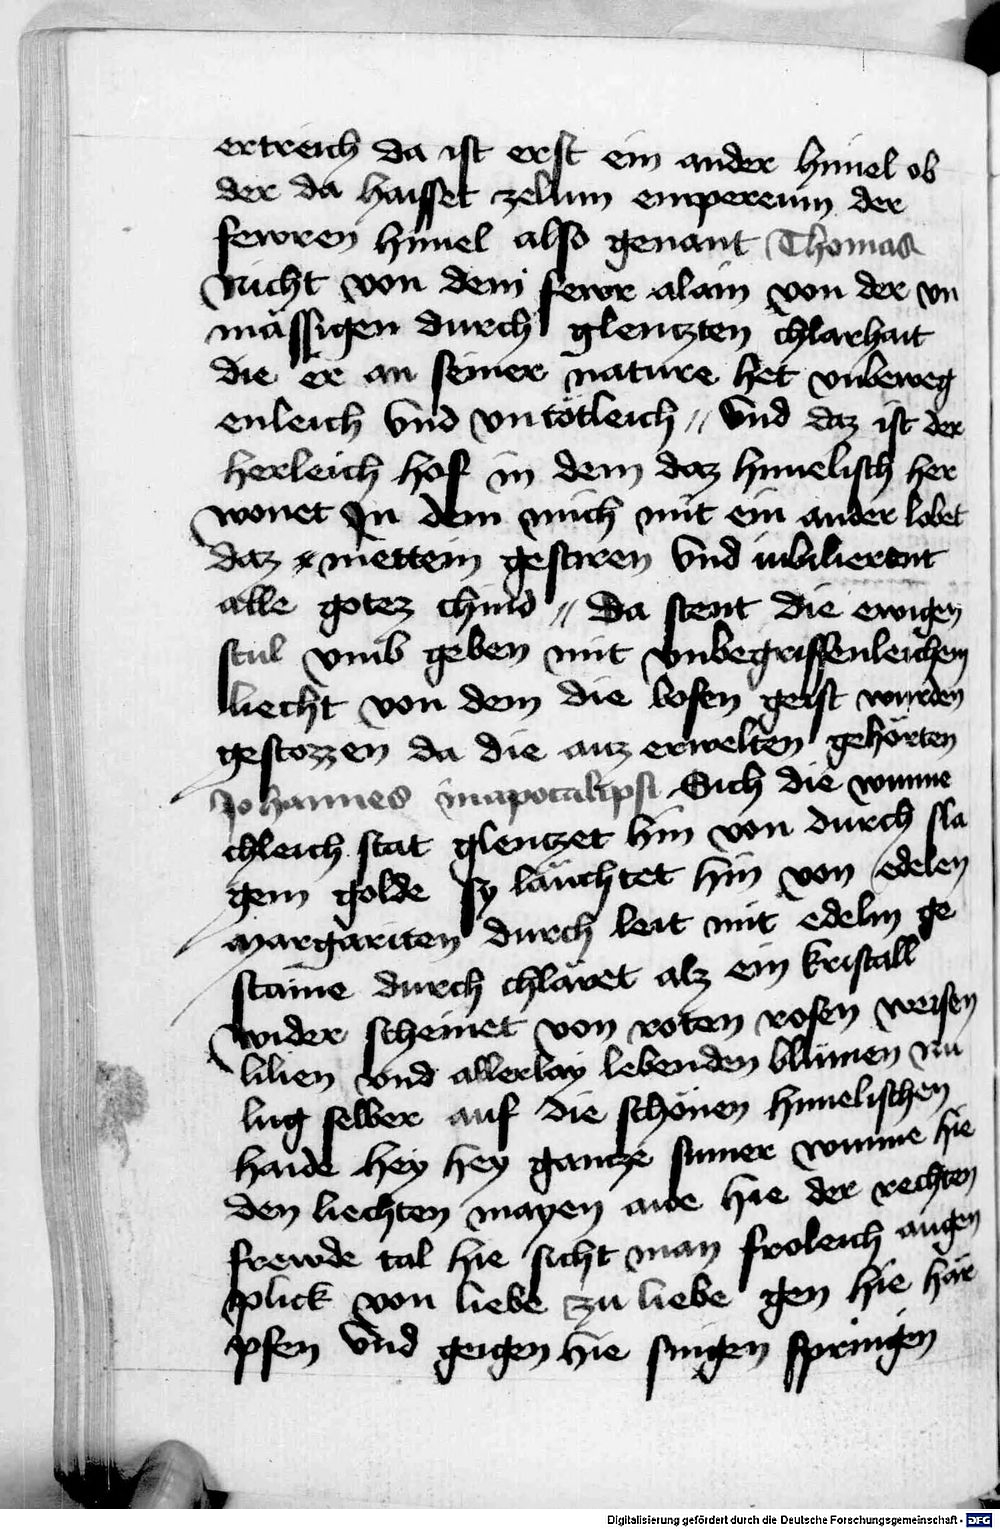 ertreich da ist erst ein ander himel ob
der da haisset zelum empereum der
fewren himel also genant Thomas
Nicht von dem fewr alain von der vn
mässigen durch glentzten chlarhait
die er an seiner nature het vnbeweg
enleich vnd vntötleich // vnd daz ist der
herleich hof in dem daz himelisch her
wonet Jn dem mich mit ein ander lobet
daz mettein gestiren vnd iubilierent
alle gotez chind // Da stent die ewigen
stul vmb geben mit vnbegriffenleichem
liecht von dem die bosen geist wurden
gestozzen da die auz erwelten gehörten
Johannes in apocalipsi Sich die wunne
chleich stat glentzet hin von durch sla
gem golde sy läuchtet hin von edelen
margariten durch leit mit edelm ge
staine durch chläret alz ein kristall
wider scheinet von roten rosen weisen
lilien vnd allerlay lebenden blumen nu
lug selber auf die schönen himelischen
haide hey hey gantze sumer wunne hie
den liechten mayen awe hie der rechten
frewde tal hie sicht man froleich augen
plick von liebe zu liebe gen hie här
pfen vnd geigen hie singen springen
Digitalisierung gefördert durch die Deutsche Forschungsgemeinschaft - DFG